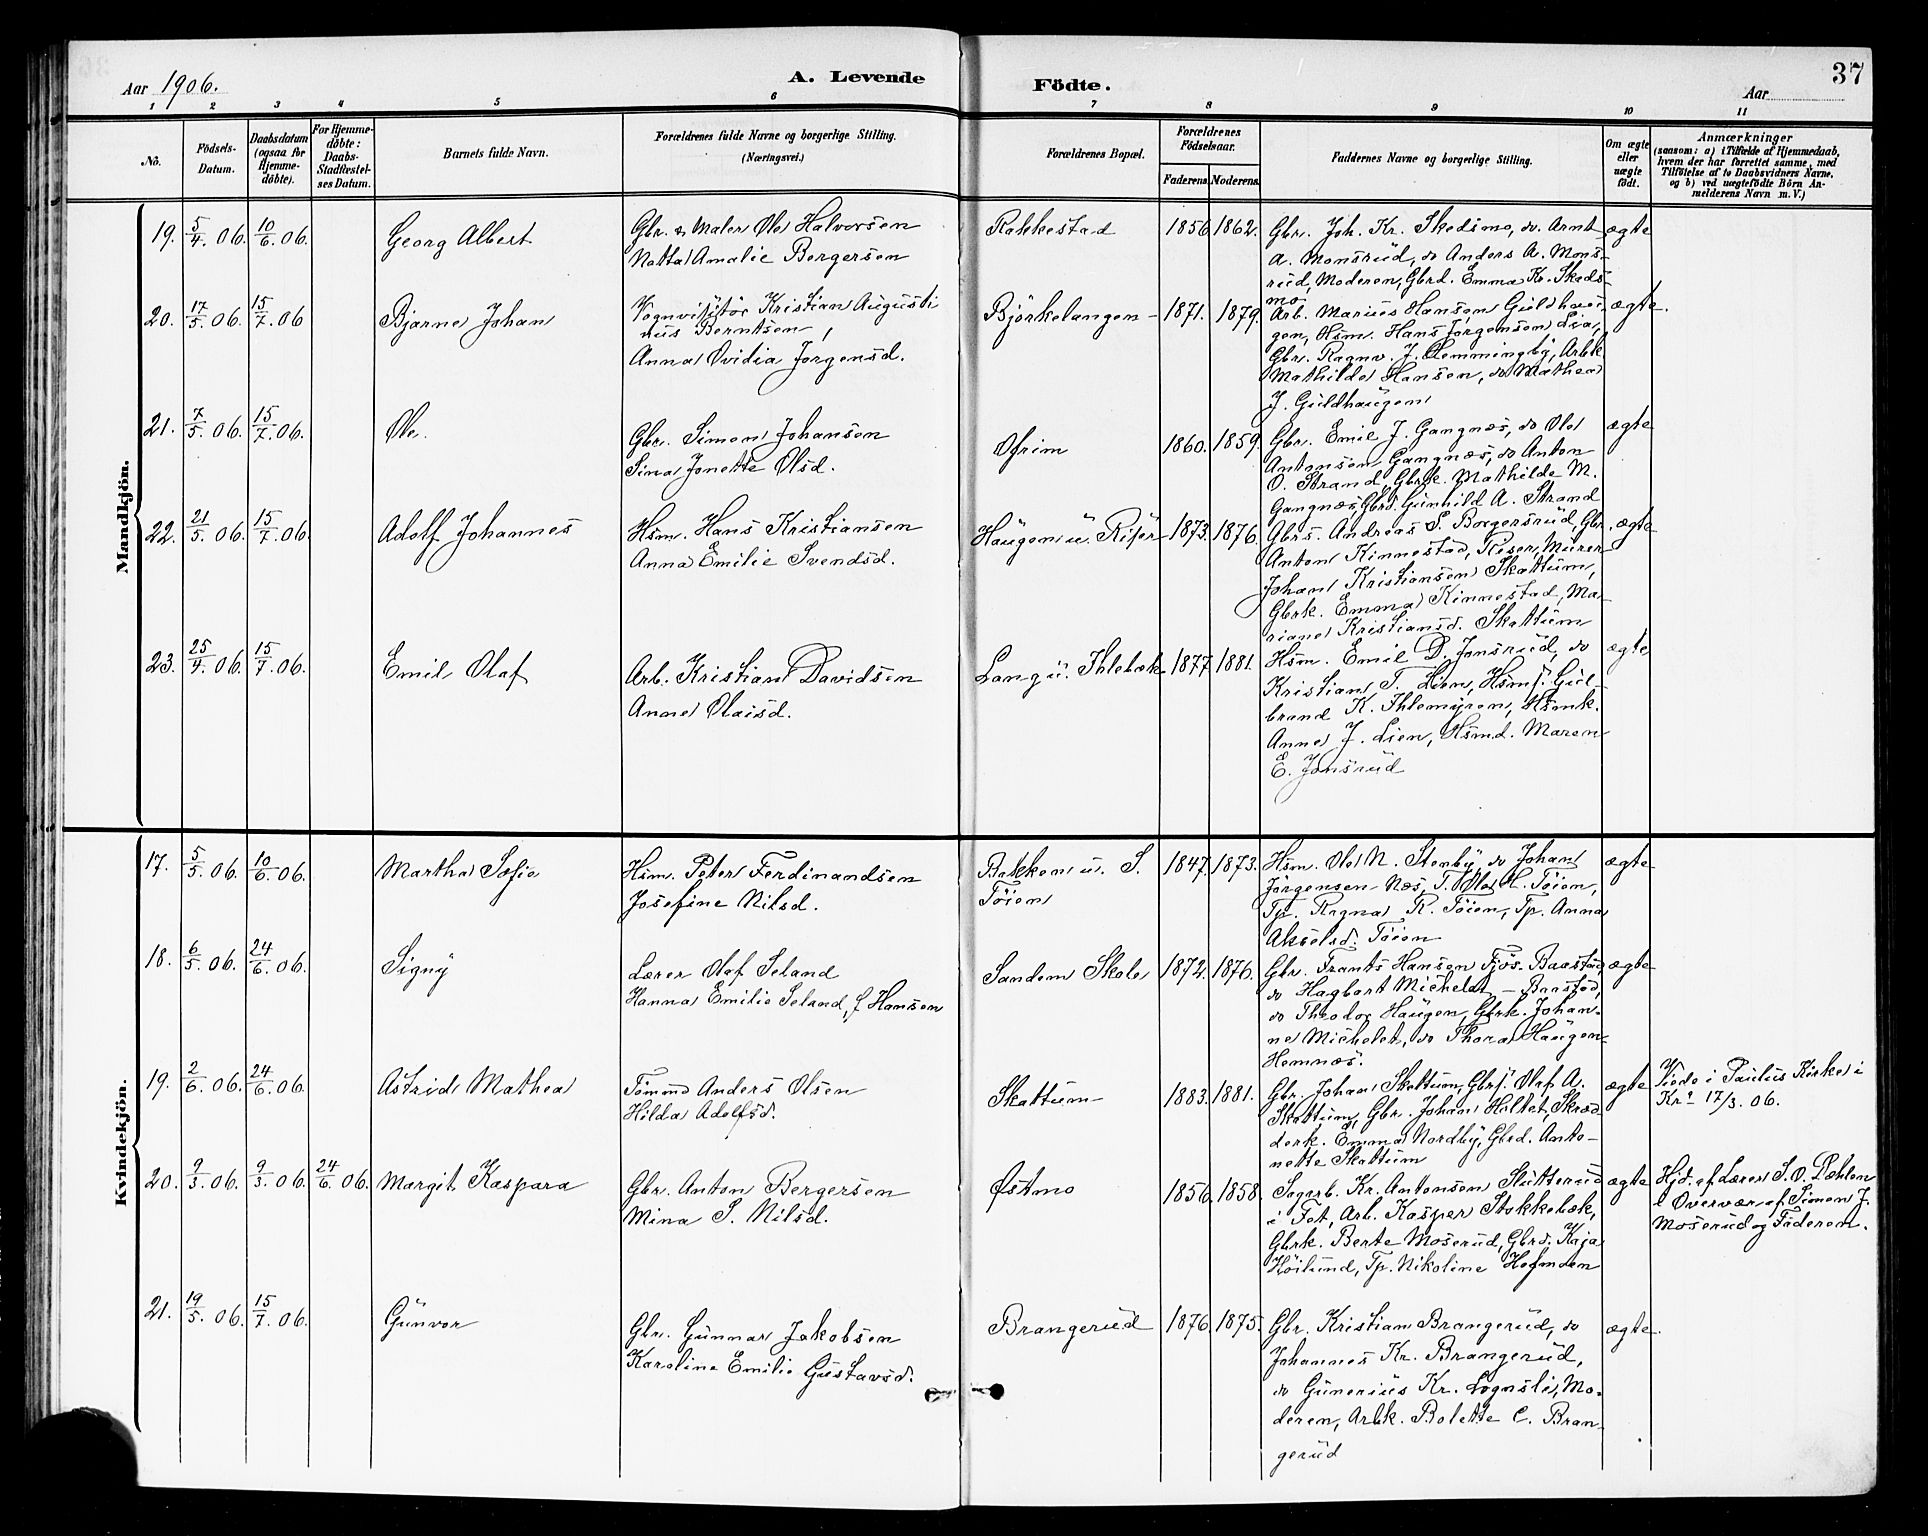 37
Aar 1906.
A. Levende Födte.
Aar
1 2 3 4 5 6 7 8 9 10 11
No.
Födsels-
Datum.
Daabsdatum
(ogsaa for
Hjemme-
döbte).
For Hjemme-
döbte:
Daabs-
Stadfæstel-
ses Datum.
Barnets fulde Navn.
Forældrenes fulde Navne og borgerlige Stilling.
(Næringsvei.)
Forældrenes Bopæl.
Forældrenes
Födselsaar.
Faderens. Moderens.
Faddernes Navne og borgerlige Stilling.
Om ægte
eller
uægte
födt.
Anmærkninger
(saasom: a) i Tilfælde af Hjemmedaab,
hvem der har forrettet samme, med
Tilföielse af to Daabsvidners Navne,
og b) ved uægtefödte Börn An-
melderens Navn m. V.)
Mandkjön.
19. 5/4. 06. 10/6. 06.
Georg Albert
Gbr. & Maler Ole Halvorsen
Netta Amalie Borgersen
Rakkestad
1856 1862.
Gbr. Joh. Kr. Skedsmo, do Arnt
A. Monsrud, do Anders A. Mons-
rud, Moderen, Gbrd. Emma Kr. Skeds-
mo
ægte
20. 17/5. 06. 15/7. 06
Bjarne Johan
Vognvisitør Kristian Augusti
nus Berntsen,
Anna Ovidia Jorgensd.
Björkelangen
1871. 1879.
Arb. Marius Hansen Guldhau-
gen, Hsm. Hans Jørgensen Lia,
Gbr. Ragnv. J. Lemmingby, Arbk.
Mathilde Hansen, do Mathea
J. Guldhaugen
ægte.
21. 7/5. 06. 15/7. 06.
Ole.
Gbr. Simen Johansen
Sina Jonette Olsd.
Ofrim
1860. 1859.
Gbr. Emil J. Gangnæs, do Ole
Antonsen Gangnæs, do Anton
O. Strand, Gbrk. Mathilde M.
Gangnæs, Gbrd. Gunhild A. Strand
ægte
22. 21/5. 06. 15/7. 06.
Adolf Johannes
Hsm. Hans Kristiansen
Anna Emilie Svendsd.
Haugen u. Riser
1873. 1876.
Gbrs. Andreas S. Borgersrud, Gbr.
Anton Kinnestad, Riser, Murer
Johan Kristiansen Skattum,
Gbrk. Emma Kinnestad, Ma-
riane Kristiansd. Skattum
ægte
23. 25/4. 06. 15/7. 06.
Emil Olaf
Arb. Kristian Davidsen
Anne Olaisd.
Lang u. Ihlebæk
1877. 1881.
Hsm. Emil D. Jonsrud, do
Kristian T. Lien, Hsms. Gul-
brand K. Ihlemyren, Hsmk.
Anne J. Lien, Hsmd. Maren
E. Jonsrud
ægte
Kvindekjön.
17. 5/5. 06. 10/6. 06.
Martha Sofie
Hsm. Peter Ferdinandsen
Josefine Nilsd.
Bakken u. S.
Tøien
1847. 1873.
Hsm. Ole N. Stenby do Johan
Jørgensen Næs, T. Ole H. Tøien,
Tp. Ragna K. Tøien, Tp. Anna
Akselsd. Tøien
ægte
18. 6/5. 06. 24/6. 06.
Signy
Lærer Olaf Seland
Hanna Emilie Seland, f. Hansen
Sandem Skole
1872. 1876.
Gbr. Frants Hansen Fjøs-Baastad,
do Hagbart Michelet - Baastad,
do Theodor Haugen, Gbrk. Johan-
ne Michelet, do Thora Haugen-
Hemnæs.
ægte
19. 2/6. 06. 24/6. 06.
Astrid Mathea
Tømmd Anders Olsen
Hilda Adolfsd.
Skattum
1883. 1881.
Gbr. Johan Skattum, Gbrs. Olaf A.
Skattum, Gbr. Johan Holtet, Skræd-
derk. Emma Nordby, Gbrd. Anto-
nette Skattum
ægte
Viede i Paulus Kirke i
Kra 17/3. 06.
20. 9/3. 06. 9/3. 06. 24/6. 06.
Margit Kaspara
Gbr. Anton Bergersen
Mina S. Nilsd.
Østmo
1856. 1858.
Sagarb. Kr. Antonsen Slutterud
i Fet, Arb. Kasper Stokkebæk,
Gbrk. Berte Moserud, Gbrd. Kaja
Høilund, Tp. Nikoline Hofmoen
ægte
Hjd. af Lærer S. O. Dæhlen
i Overvær af Simen J.
Moserud og Faderen.
21. 19/5. 06. 15/7. 06.
Gunvor
Gbr. Gunnar Jakobsen
Karoline Emilie Gustavsd.
Brangerud
1876. 1875.
Gbr. Kristian Brangerud, do
Johannes Kr. Brangerud,
do Gunerius Kr. Lognsli, Mo-
deren, Arbk. Bolette C. Bran-
gerud
ægte.